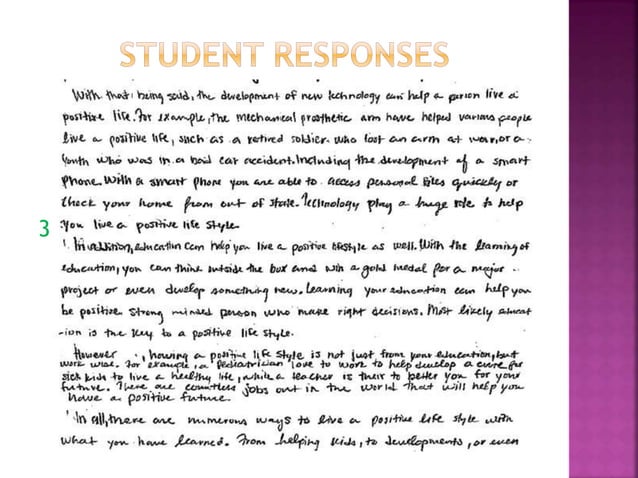 STUDENT RESPONSES
With that being said, the development of new technology can help a person live a
positive life. For example, the mechanical prosthetic arm have helped various people
live a positive life, such as a retired soldier. who lost an arm at war, or a
youth who was in a bad car accident. Including the development of a smart
phone. With a smart phone you are able to access personal files quickly or
check your home from out of state. Technology play a huge role to help
3
you live a positive life style.
In addition, education can help you live a positive lifestyle as well. With the learning of
education, you can think outside the box and win a gold medal for a major
project or even develop something new. Learning your education can help you
be positive strong minded person who make right decisions. Most likely educat
-ion is the key to a positive life style.
However, having a positive life style is not just from your education, but
work wise. For example, a Pediatrician love to work to help develop a cure for
sick kids to live a healthy life, while a teacher is their to better you for your
future. There are countless jobs out in the world that will help you
have a positive future.
In all, there are numerous ways to live a positive life style with
what you have learned. From helping kids, to developments, or even